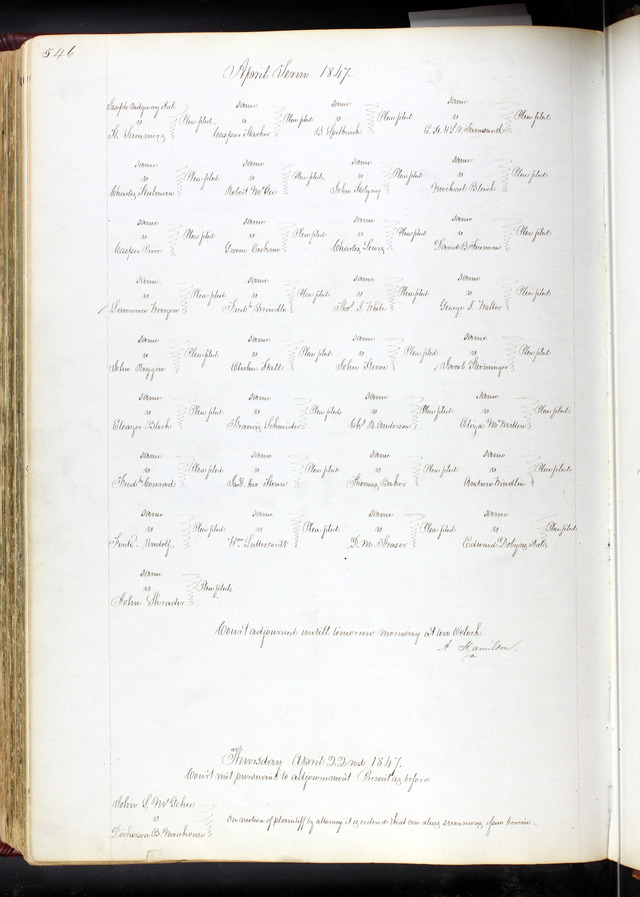 546
April Term 1847.
Joseph Ridgway et al. same same same
vs Plea filed. vs Plea filed vs Plea filed vs Plea filed
H. Summers Casper B
same same same same
vs Plea filed vs Plea filed vs Plea filed vs Plea filed
Charles Robert McGee John Michael Blush
same same same same
vs Plea filed vs Plea filed vs Plea filed vs Plea filed
Casper Price Green Erskine Charles Lewis David B. Freeman
same same same same
vs Plea filed vs Plea filed vs Plea filed vs Plea filed
Lawrence Fredk. Brendle Thos. J. White George J. Walter
same same same same
vs Plea filed vs Plea filed vs Plea filed vs Plea filed
John Hall John Stern Jacob Steininger
same same same same
vs Plea filed vs Plea filed vs Plea filed vs Plea filed
Eleazer Block Francis Schneider B. Anderson Eliza McMillen
same same same same
vs Plea filed vs Plea filed vs Plea filed vs Plea filed
Fredk. Conrad Thomas Baker Andrew
same same same same
vs Plea filed vs Plea filed vs Plea filed vs Plea filed
Ferdd. Rudolf Wm. D. M. Frazer Edward Dobyns et al
same
vs Plea filed
John Shrader
Court adjourned untill tomorrow morning at ten Oclock
A. Hamilton.
Thursday April 22nd 1847.
Court met pursuant to adjournment Present as before
John S. McGehee
vs On motion of plaintiff by attorney it is ordered that an alias summons issue herein
Dickerson B. Morehouse